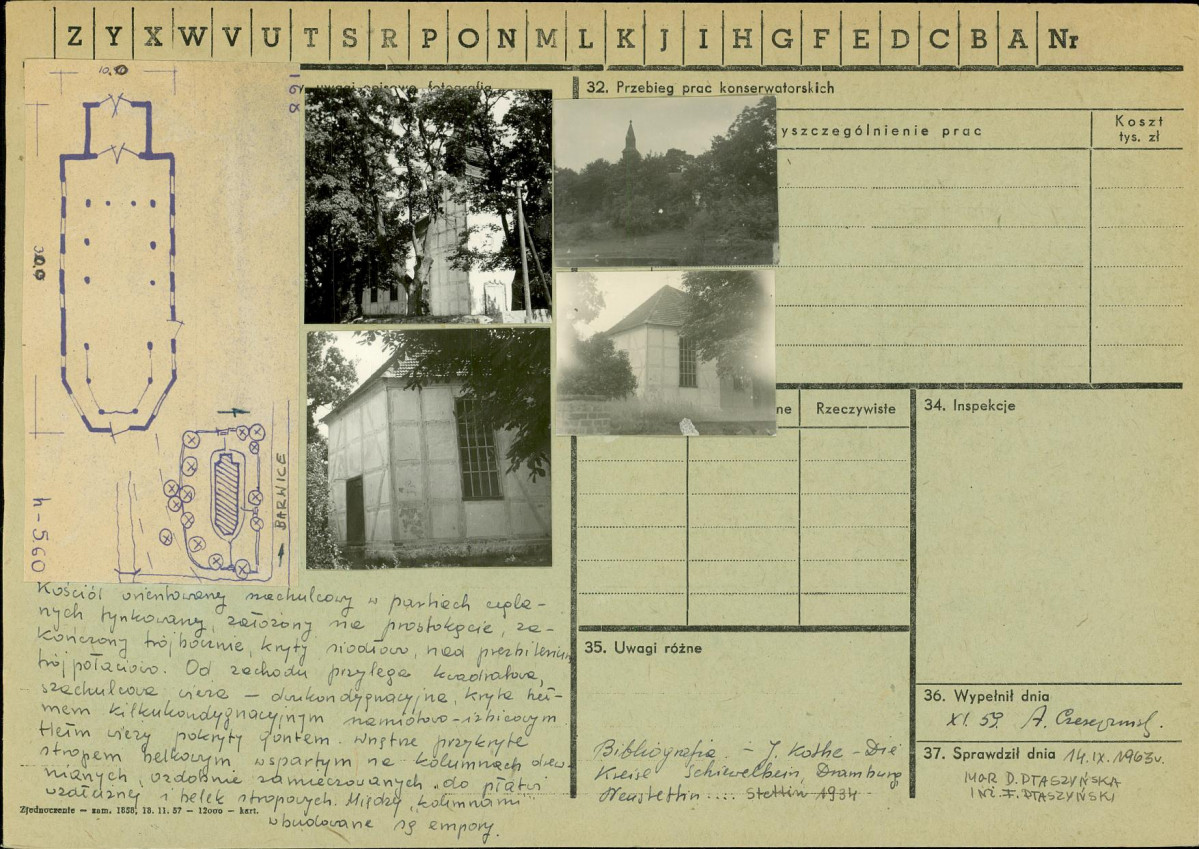 Z Y X W V U T S R P O N M L K J I H G F E D C B A Nr
10.0
168
30.0
h-5.60
BARWICE
32. Przebieg prac konserwatorskich
yszczególnienie prac
Koszt
tys. zł
ne
Rzeczywiste
34. Inspekcje
35. Uwagi różne
36. Wypełnił dnia
XI. 59. A.
37. Sprawdził dnia 14.IX.1963r.
MGR D. PTASZYŃSKA
INŻ. F. PTASZYŃSKI
Kościół orientowany szachulcowy w partiach cegla-
nych tynkowany, założony na prostokącie, za-
kończony trójbocznie, kryty siodłowo, nad prezbiterium
trójpołaciowo. Od zachodu przylega kwadratowa,
szachulcowa wieża – dwukondygnacyjna, kryta heł-
mem kilkukondygnacyjnym namiotowo-izbicowym.
Hełm wieży pokryty gontem. Wnętrze przykryte
stropem belkowym, wspartym na kolumnach drew-
nianych, ozdobnie zamieczowanych do płatwi
wzdłużnej i belek stropowych. Między kolumnami
wbudowane są empory.
Bibliografia – J. Kothe – Die
Kreise Schiewelbein, Dramburg
Neustettin .... Stettin 1934
Zjednoczenie – zam. 1858, 18. 11. 57 – 12000 – kart.